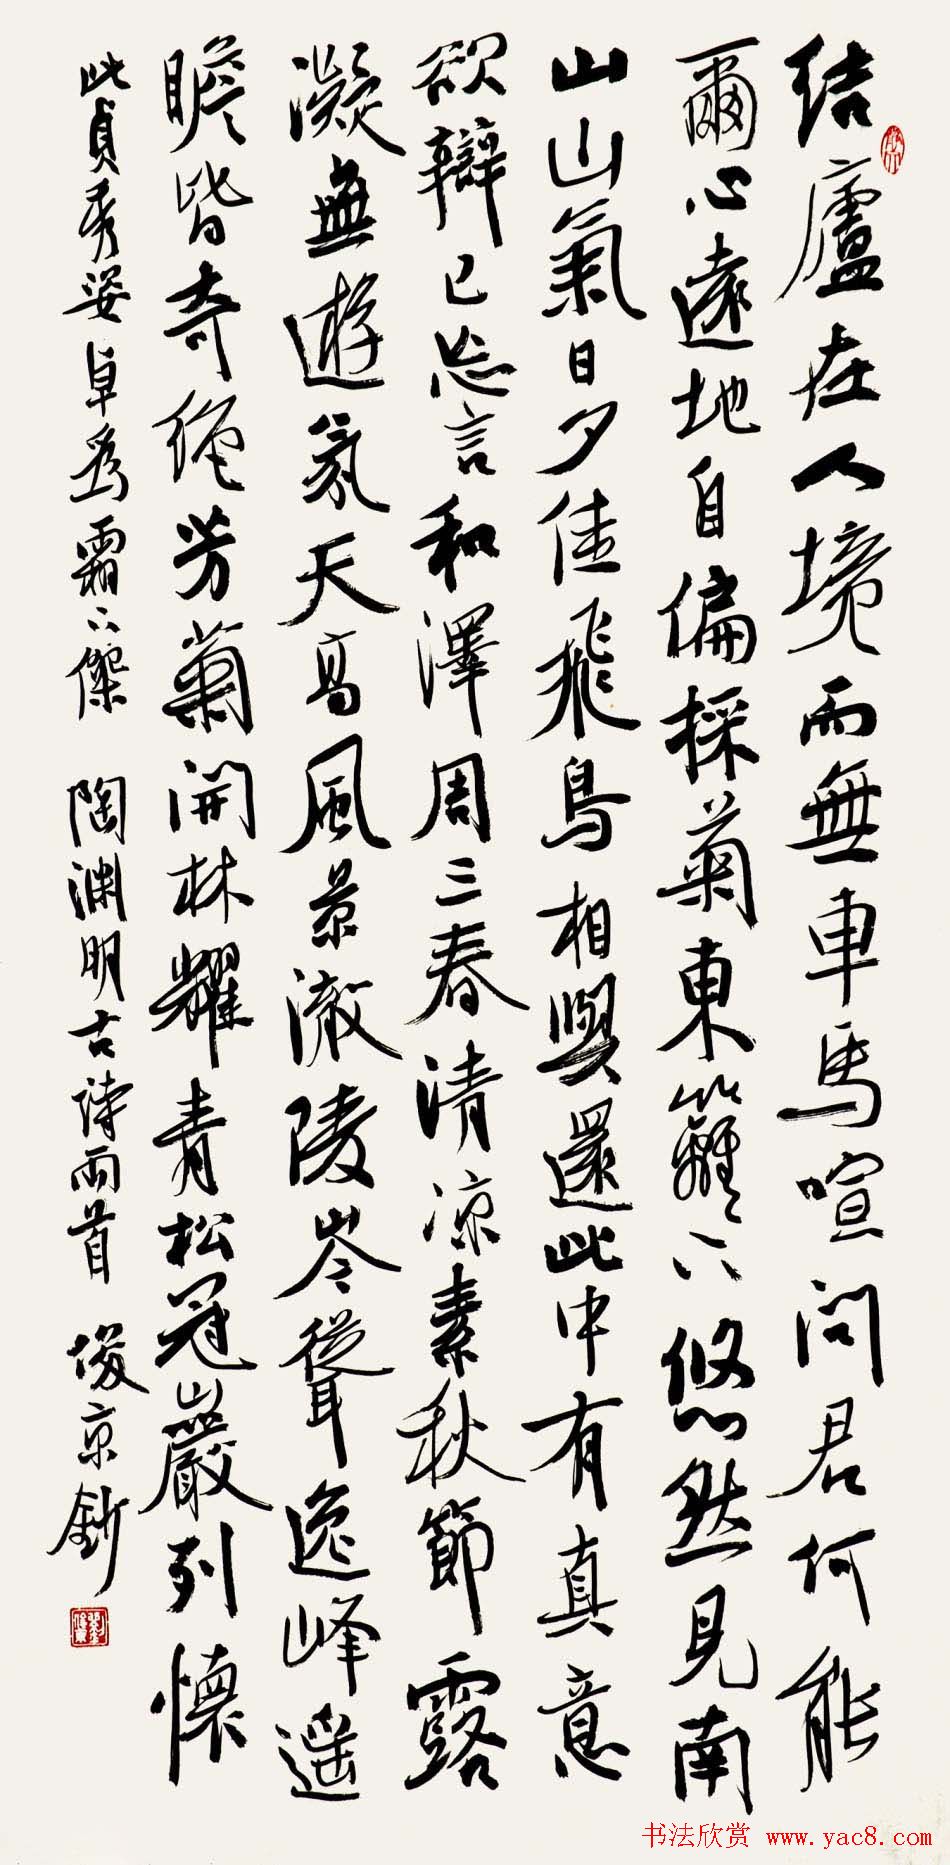 結廬在人境而無車馬喧問君何能
爾心遠地自偏採菊東籬下悠然見南
山山氣日夕佳飛鳥相與還此中有真意
欲辯已忘言和澤周三春清涼素秋節露
凝無遊氛天高風景澈陵岑聳逸峰遥
瞻皆奇絶芳菊開林耀青松冠巖列懷
此貞秀姿卓為霜下傑 陶淵明古詩兩首 俊京鈔
书法欣赏 www.yac8.com